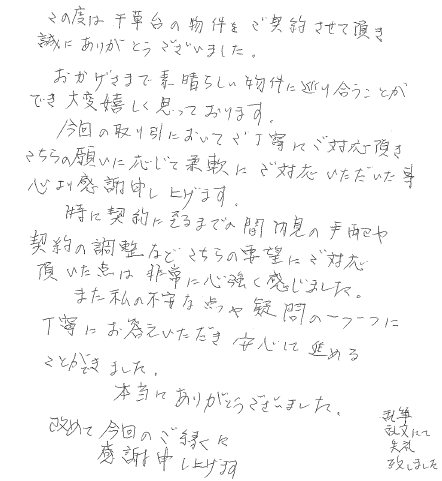 この度は千草台の物件をご契約させて頂き
誠にありがとうございました。
おかげさまで素晴らしい物件に巡り合うことが
でき大変嬉しく思っております。
今回の取り引においてご丁寧にご対応頂き
こちらの願いに応じて柔軟にご対応いただいた事
心より感謝申し上げます。
特に契約に至るまでの間 内見の手配や
契約の調整などこちらの要望にご対応
頂いた点は非常に心強く感じました。
また私の不安な点や疑問の一つ一つに
丁寧にお答えいただき安心して進める
ことができました。
本当にありがとうございました。
改めて今回のご縁に
感謝申し上げます
乱筆
乱文にて
失礼
致しました